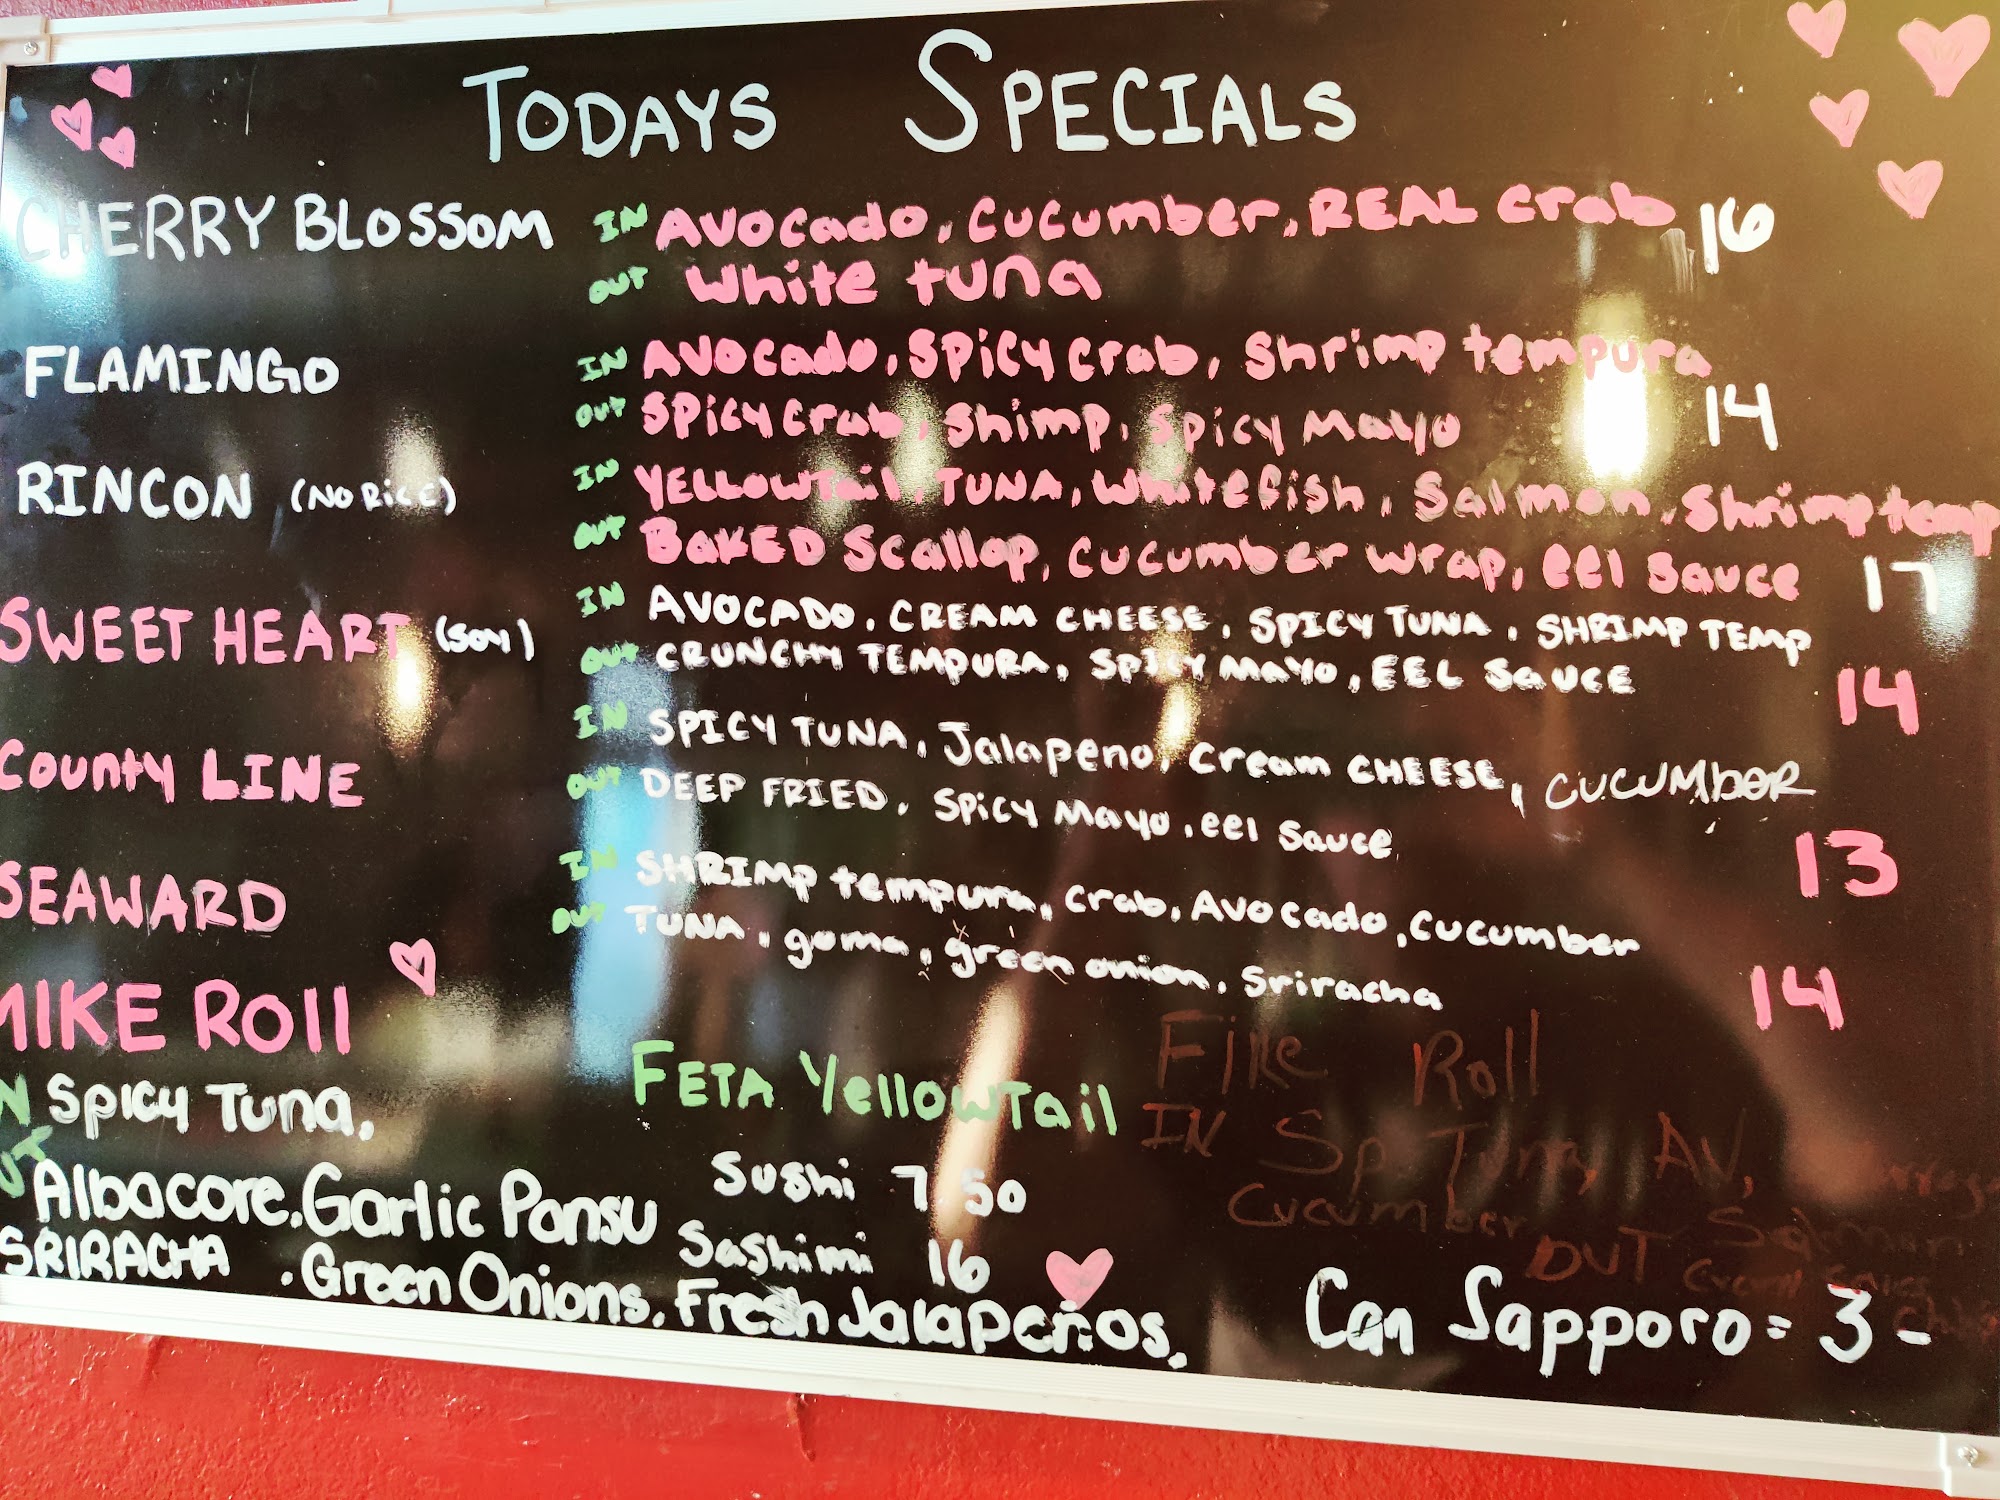 TODAYS SPECIALS
CHERRY BLOSSOM IN AVOcado, CUCUMber, REAL Crab 16
OUT White tuna
FLAMINGO IN AVOcado, SPICY Crab, Shrimp tempura
OUT SPICY Crab, Shimp, Spicy Mayo 14
RINCON (NO RICE) IN YELLOWTail, TUNA, Whitefish, Salmon, Shrimp temp
OUT BAKED Scallop, CUCUMber Wrap, eel Sauce 17
SWEET HEART (SOY) IN AVOCADO, CREAM CHEESE, SPICY TUNA, SHRIMP TEMP
OUT CRUNCHY TEMPURA, SPICY MAYO, EEL SAUCE 14
County LINE IN SPICY TUNA, Jalapeno, Cream CHEESE, CUCUMbER
OUT DEEP FRIED, Spicy Mayo, eel Sauce 13
SEAWARD IN SHRIMP tempura, Crab, AVOcado, CUCUMber
OUT TUNA, goma, green onion, Sriracha 14
MIKE ROll
IN SPICY TUNA,
OUT Albacore, Garlic Ponsu
SRIRACHA, Green Onions, Fresh Jalapeños,
FETA YellowTail
Sushi 7 50
Sashimi 16
Fire Roll
IN Sp Tuna, AV,
Cucumber OUT Salmon
Can Sapporo = 3 -